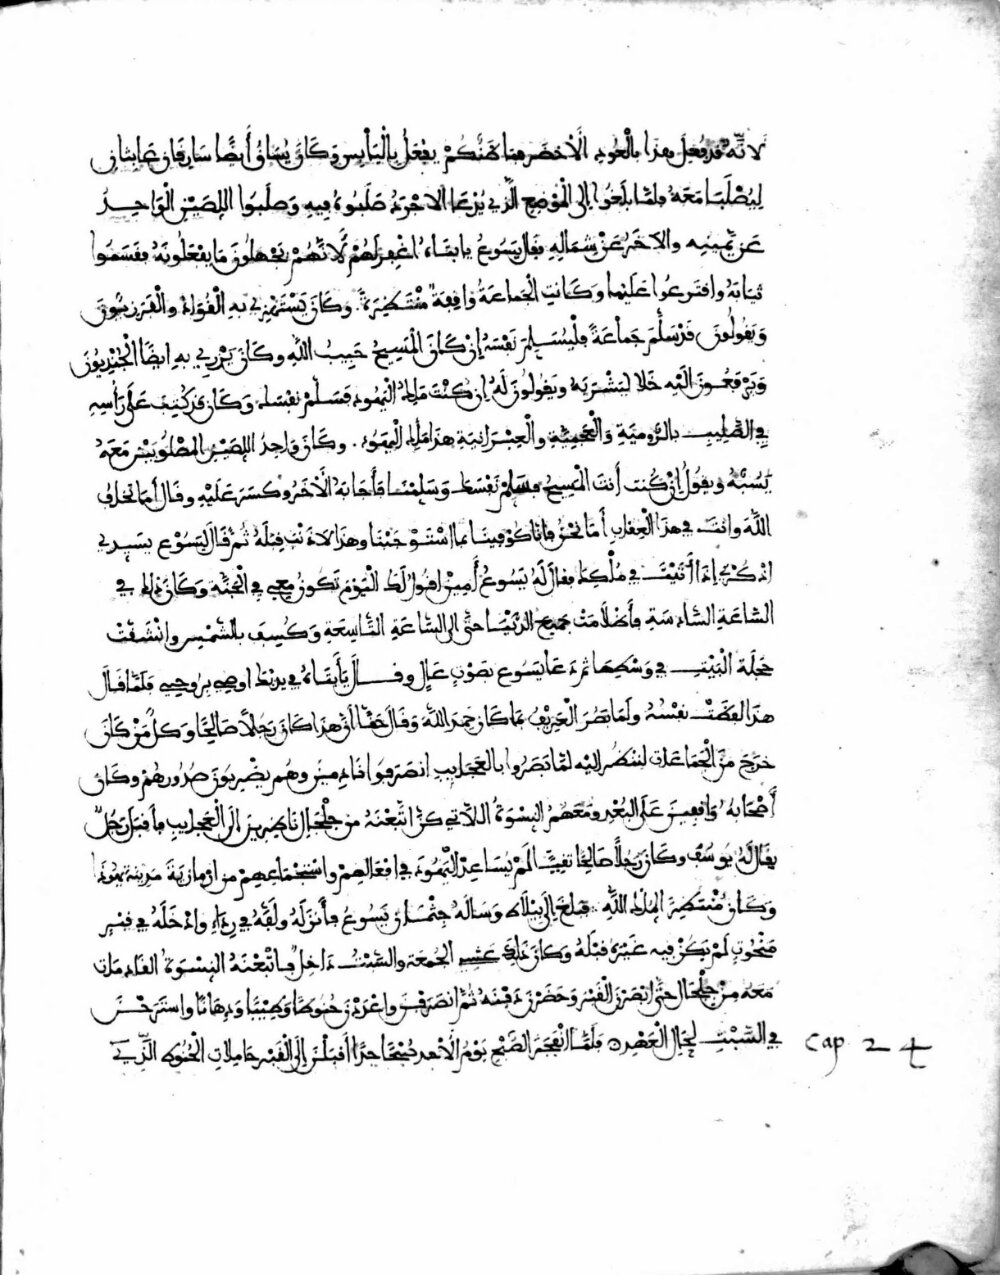 لانّه قد فعل هذا بالعود الأخضر فما ظنّكم يفعل باليابس وكان يساق أيضًا سارقان عابثان
ليصلبا معه فلمّا بلغوا إلى الموضع الّذي يدعا الاجرد صلبوه فيه وصلبوا اللصين الواحد
عن يمينه والآخر عن شماله فقال يسوع يا ابتاه اغفر لهم لأنّهم يجهلون ما يفعلونه فقسموا
ثيابه واقترعوا عليها وكانت الجماعة واقفة منتظرة وكان يستهزي به القواد والفرزيون
ويقولون قد سلّم جماعة فليسلم نفسه إن كان المسيح حبيب الله وكان يزري به ايضا الجنديون
ويرفعون اليه خلا ليشربه ويقولون له إن كنت ملك اليهود فسلّم نفسك وكان قد كتب على رأسه
في الصّليب بالرّومية والعجمية والعبرانية هذا ملك اليهود وكان واحد اللصين المصلوبين معه
يسبّه ويقول إن كنت أنت المسيح فسلم نفسك وسلمنا فأجابه الآخر وكسر عليه وقال أما تخاف
الله وانت في هذا العقاب أما نحن فانا كوفينا بما استوجبنا وهذا لا ذنب قبله ثم قال ليسوع يسيدي
اذكرني إذا أتيت في ملكك فقال له يسوع أمين اقول لك اليوم تكون معي في الجنّة وكان ذلك في
السّاعة السّادسة فأظلامت جميع الدّنيا حتى إلى السّاعة التّاسعة وكسف بالشّمس وانشقت
حجلة البيت في وسطها ثم دعا يسوع بصوت عال وقال يا أبتاه في يدك اوصي بروحي فلمّا قال
هذا لفظت نفسه ولما بصر العريف بما كان حمد الله وقال حقّا أنّ هذا كان رجلا صالحًا وكل من كان
خرج من الجماعات لينظر إليه لمّا بصروا بالعجايب انصرفوا نادمين وهم يضربون صدورهم وكان
أصحابه واقفين على البعد ومعهم النسوة اللاتي كنّ اتبعنه من جلجال ناظرين إلى العجايب فأقبل رجل
يقال له يوسف وكان رجلاً صالحا تقيّا لم يساعد اليهود في افعالهم واستجماعهم من ارمازية مدينة يهوذا
وكان منتظرا لملك الله فبلغ إلى بيلاط وساله جثمان يسوع فأنزله ولفّه في رداء وادخله في قبر
منحوت لم يكن فيه غيره قبله وكان ذلك عشي الجمعة والسّبت داخل فاتبعنه النسوة القادمات
معه من جلجال حتى ابصرن القبر وحضرن دفنه ثمّ انصرفن واعددن حنوطا وطيبا ودهانا واسترحن
في السّبت لحال العهد فلمّا انفجر الصّبح يوم الأحد بُحقا جدّا أقبلن إلى القبر حاملات الحنوط الّذي
Cap 24